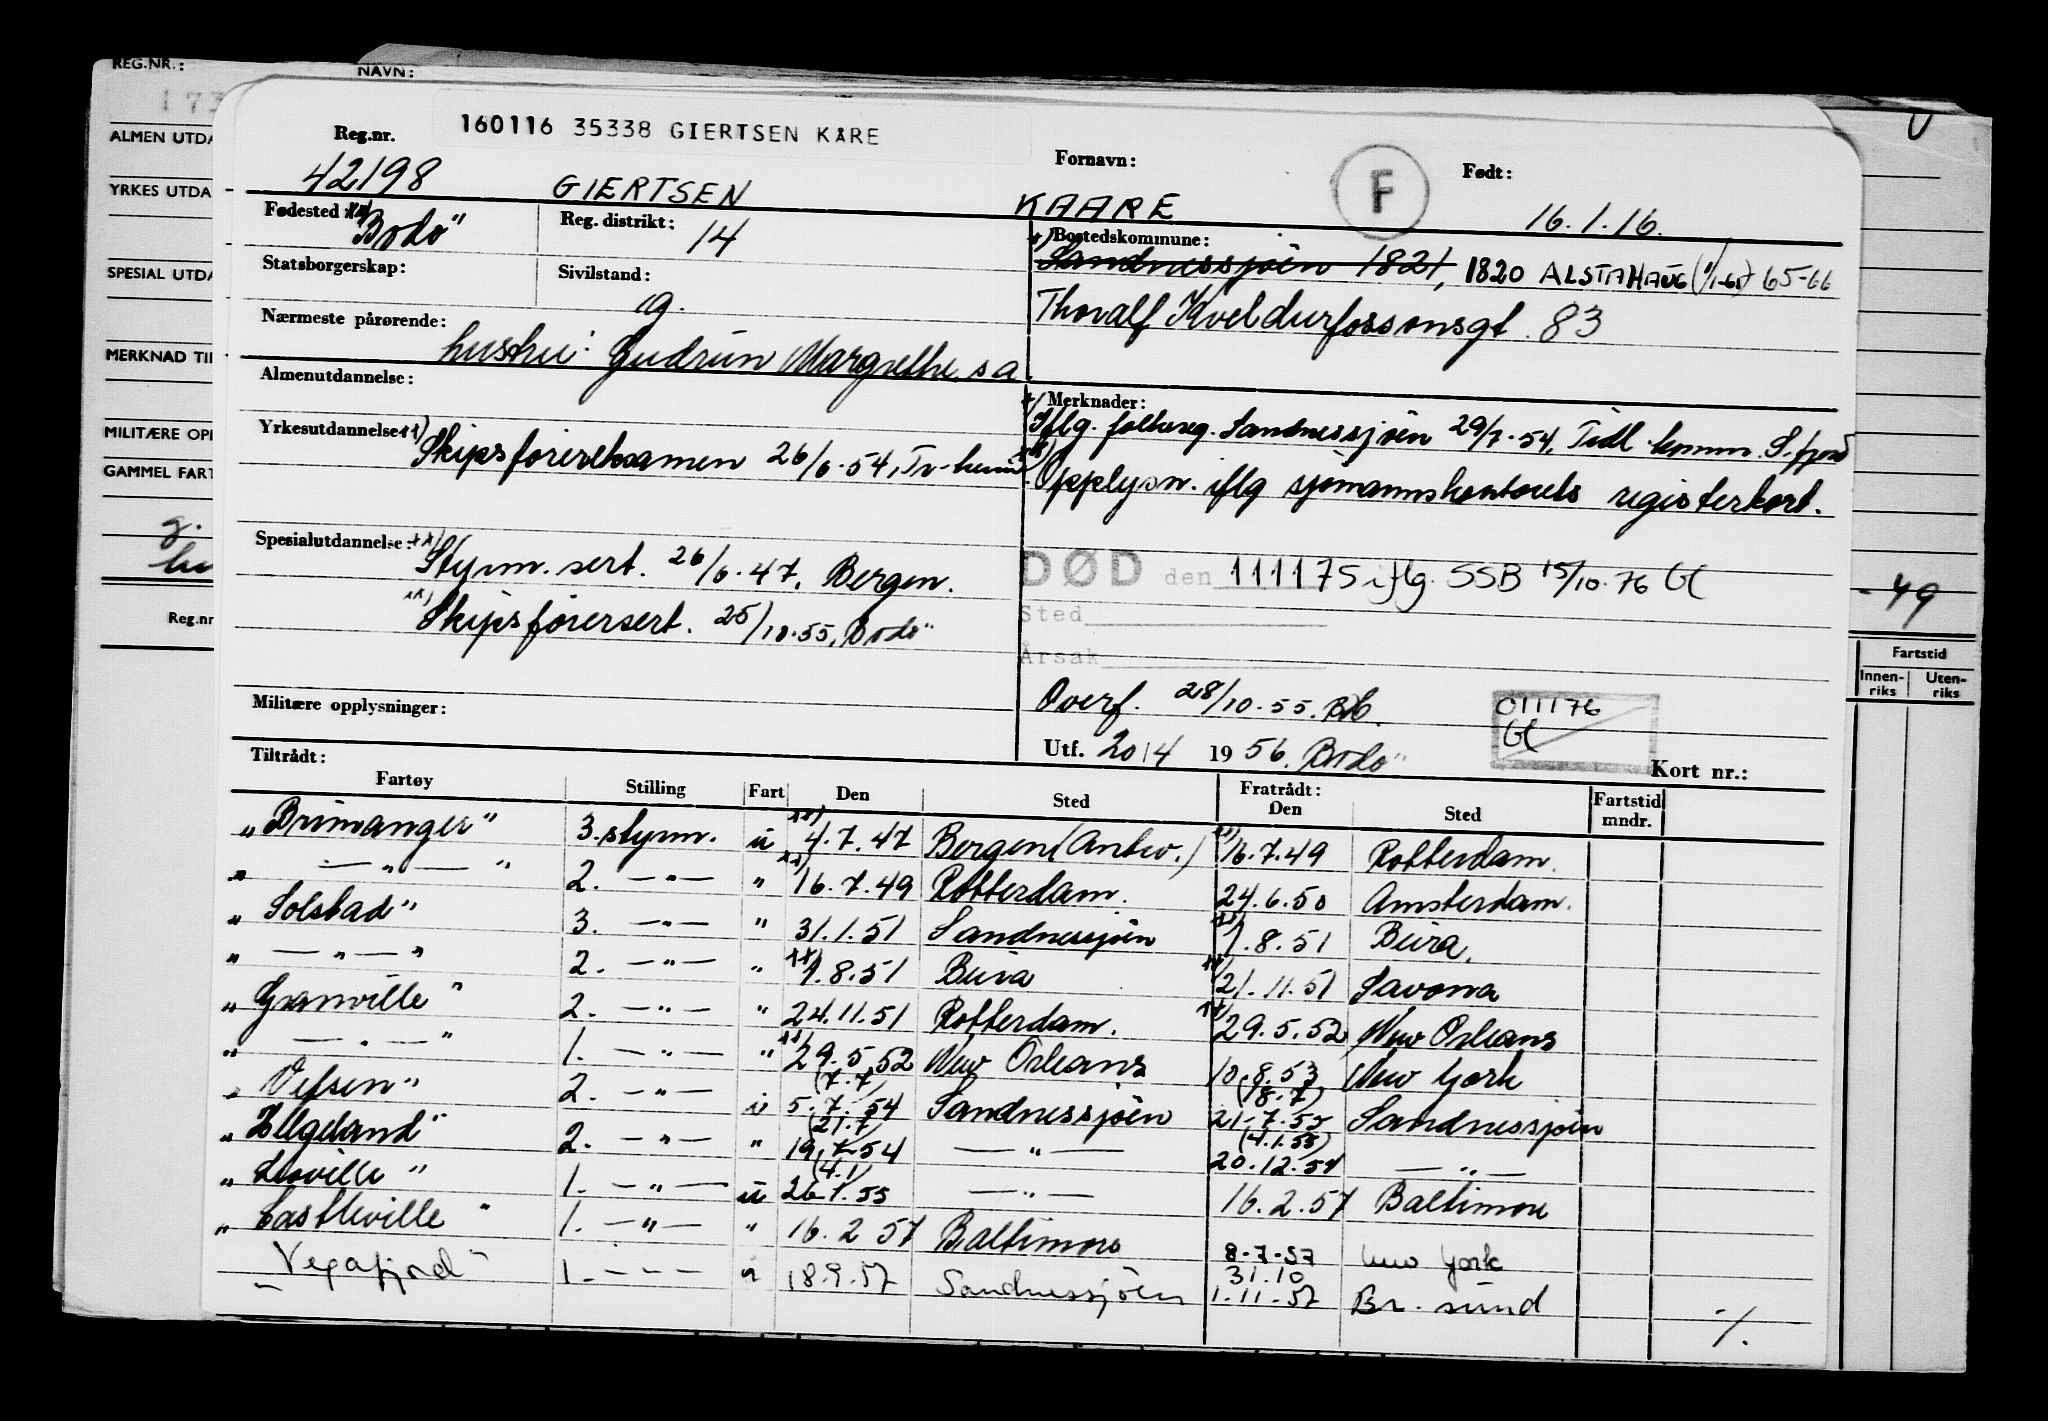 REG.NR.:
NAVN:
173
ALMEN UTDA
YRKES UTDA
SPESIAL UTDA
MERKNAD TIL
MILITÆRE OPL
GAMMEL FART
g.
hu
Reg.nr
160116 35338 GIERTSEN KÅRE
Reg.nr.
42198
GIERTSEN
Fornavn:
KAARE
F
Født:
16.1.16.
Fødested xx) Bodö
Reg. distrikt: 14
Bostedskommune:
x) Sandnessjöen 1821, 1820 ALSTAHAUG (1/1-65) 65-66
Statsborgerskap:
Sivilstand: g.
Thoralf Kveldurfossonsgt. 83
Nærmeste pårørende: hustru: Gudrun Margrethe, s a.
Almenutdannelse:
Merknader:
x) Iflg. folkereg. Sandnessjöen 29/7-54, Tidl. komm. S.fjord
Yrkesutdannelse xx) Skipsförereksamen 26/6-54, Tr.heim
xx) Opplysn. iflg sjömannskontorets registerkort.
Spesialutdannelse: xx) Styrm. sert. 26/6-47, Bergen.
xx) Skipsförersert. 25/10-55, Bodö
DØD den 111175 iflg. SSB 15/10-76 GE
Sted
Årsak
Militære opplysninger:
Overf. 28/10-55. BB.
011176
GE
Utf. 20/4 1956. Bodö
Kort nr.:
Tiltrådt:
Fartøy Stilling Fart Den Sted Fratrådt: Den Sted Fartstid mndr.
"Brimanger" 3. styrm. u xx) 4.7.47 Bergen (Antw.) xx) 16.7.49 Rotterdam.
" — " — " 2. — " — " xx) 16.7.49 Rotterdam. 24.6.50 Amsterdam.
"Solstad" 3. — " — " 31.1.51 Sandnessjöen xx) 1.8.51 Beira.
" — " — " 2. — " — " xx) 1.8.51 Beira xx) 21.11.51 Savona
"Granville" 2. — " — " 24.11.51 Rotterdam. xx) 29.5.52 New Orleans
" — " — " 1. — " — " xx) 29.5.52 New Orleans 10.8.53 New York
"Vefsen" 2. — " — i (7.7) 5.7.54 Sandnessjöen (18.7) 21.7.55 Sandnessjöen
"Helgeland" 2. — " — " (21.7) 19.7.54 — " — (4.1.55) 20.12.54 — " —
"Leoville" 1. — " — u (4.1) 26.1.55 — " — 16.2.57 Baltimore
"Castleville" 1. — " — " 16.2 57 Baltimore 8.7.57 New York
"Vegafjord" 1. — " — " 18.9.57 Sandnessjöen 31.10 1.11.57 Br. sund
./.
- 49
Fartstid
Innenriks Utenriks